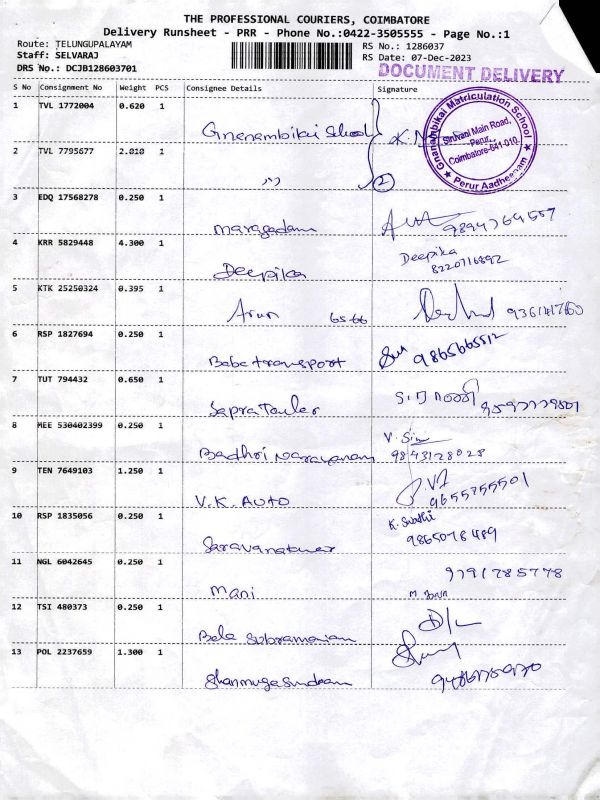 THE PROFESSIONAL COURIERS, COIMBATORE
Delivery Runsheet - PRR - Phone No.:0422-3505555 - Page No.:1
Route: TELUNGUPALAYAM
Staff: SELVARAJ
DRS No.: DCJB128603701
RS No.: 1286037
RS Date: 07-Dec-2023
DOCUMENT DELIVERY
S No Consignment No Weight PCS Consignee Details Signature
1 TVL 1772004 0.620 1 Gnenambikai School
Gnanambikai Matriculation School
Siruvani Main Road,
Perur,
Coimbatore-641-010
★ Perur Aadheenam ★
2 TVL 7795677 2.010 1 ,, 2
3 EDQ 17568278 0.250 1 maragadam
4 KRR 5829448 4.300 1 Deepika Deepika
8220716892
5 KTK 25250324 0.395 1 Arun 65-66
6 RSP 1827694 0.250 1 Baba transport 9865665512
7 TUT 794432 0.650 1
8 MEE 530402399 0.250 1 Badhri Narayanan
9843128028
9 TEN 7649103 1.250 1 V.K. AUTO 9655755501
10 RSP 1835056 0.250 1 K. Swathi
11 NGL 6042645 0.250 1 Mani 9791785778
12 TSI 480373 0.250 1
13 POL 2237659 1.300 1